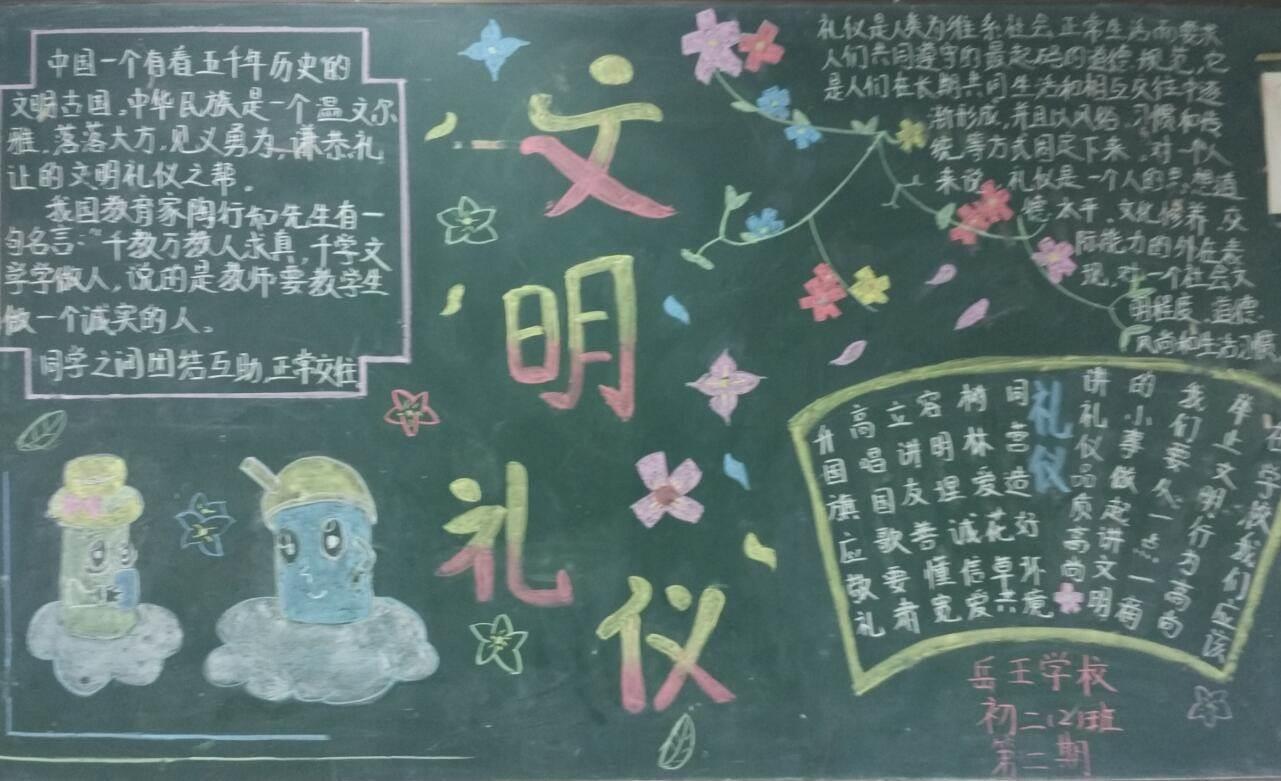 中国一个有着五千年历史的
文明古国，中华民族是一个温文尔
雅，落落大方，见义勇为，谦恭礼
让的文明礼仪之帮。
我国教育家陶行知先生有一
句名言：“千教万教人求真，千学文
学学做人，说的是教师要教学生
做一个诚实的人。
同学之间团结互助，正常交往，
文明礼仪
礼仪是人类为维系社会正常生活而要求
人们共同遵守的最起码的道德规范，它
是人们在长期共同生活和相互交往中逐
渐形成，并且以风俗、习惯和传
统等方式固定下来，对一个人
来说，礼仪是一个人的思想道
德水平，文化修养，交
际能力的外在表
现，对一个社会文
明程度、道德、
风尚和生活习惯
在学校我们应该
举止文明行为高尚
我们要从一点一滴
的小事做起讲文明
讲礼仪品质高尚
礼仪
升国旗应敬礼
高唱国歌要肃
立讲友善懂宽
容明理诚信爱
树林爱花草共
同营造好环境
岳王学校
初二(2)班
第二期